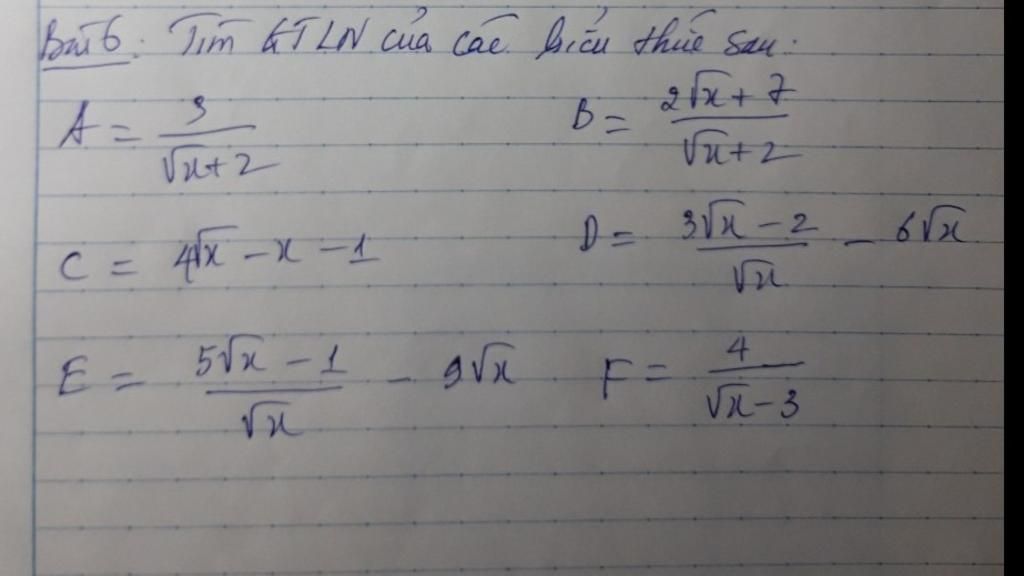 Bài 6. Tìm GTLN của các biểu thức sau.
A = 3/(√x+2) B = (2√x+7)/(√x+2)
C = 4√x - x - 1 D = (3√x-2)/√x - 6√x
E = (5√x-1)/√x - 9√x F = 4/(√x-3)